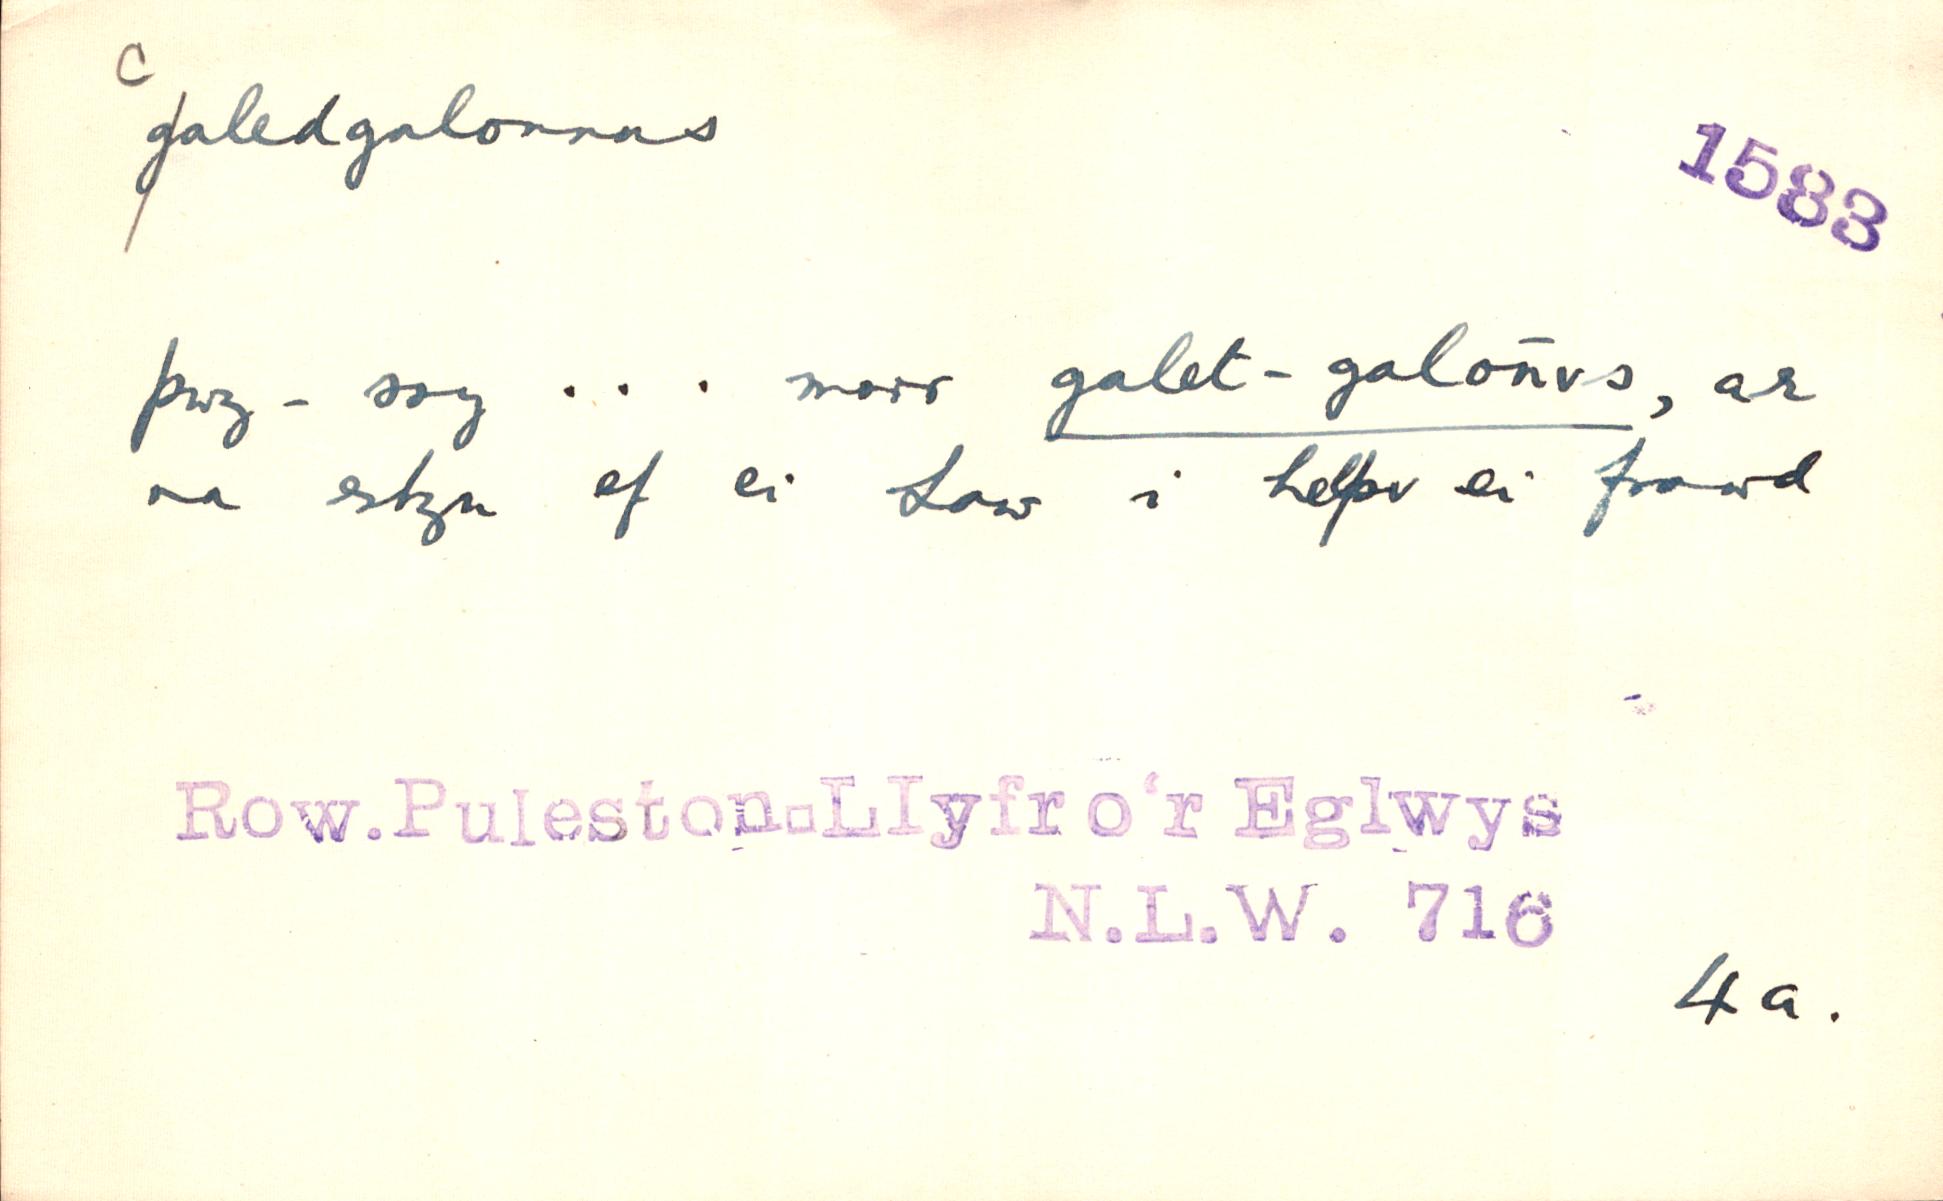 c
galedgalonnus
1583
pwy - syy . . . morr galet-galoñvs, ar
na estyn ef ei Law i helpv ei frawd
Row.Puleston-Llyfr o'r Eglwys
N.L.W. 716
4a.